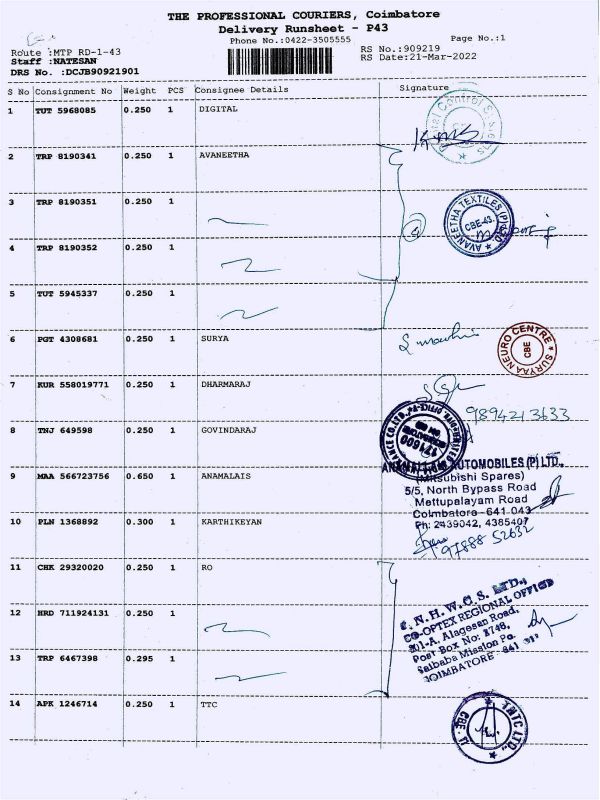 THE PROFESSIONAL COURIERS, Coimbatore
Delivery Runsheet - P43
Phone No.:0422-3505555
Page No.:1
Route :MTP RD-1-43
RS No.:909219
Staff :NATESAN
RS Date:21-Mar-2022
DRS No. :DCJB90921901
S No Consignment No Weight PCS Consignee Details Signature
1 TUT 5968085 0.250 1 DIGITAL
2 TRP 8190341 0.250 1 AVANEETHA
3 TRP 8190351 0.250 1
AVANEETHA TEXTILES (P) LTD
CBE-43.
4 TRP 8190352 0.250 1
5 TUT 5945337 0.250 1
6 PGT 4308681 0.250 1 SURYA
SURYAA NEURO CENTRE
CBE
7 KUR 558019771 0.250 1 DHARMARAJ
9894213633
8 TNJ 649598 0.250 1 GOVINDARAJ
9 MAA 566723756 0.650 1 ANAMALAIS
AUTOMOBILES (P) LTD.,
(Mitsubishi Spares)
5/5, North Bypass Road
Mettupalayam Road
Coimbatore - 641 043
Ph: 2439042, 4385407
10 PLN 1368892 0.300 1 KARTHIKEYAN
97888 52632
11 CHK 29320020 0.250 1 RO
12 HRD 711924131 0.250 1
C.N.H.W.C.S. LTD.,
CO-OPTEX REGIONAL OFFICE
201-A, Alagesan Road,
Post Box No: 1746,
Saibaba Mission Po.
COIMBATORE - 641
13 TRP 6467398 0.295 1
14 APK 1246714 0.250 1 TTC